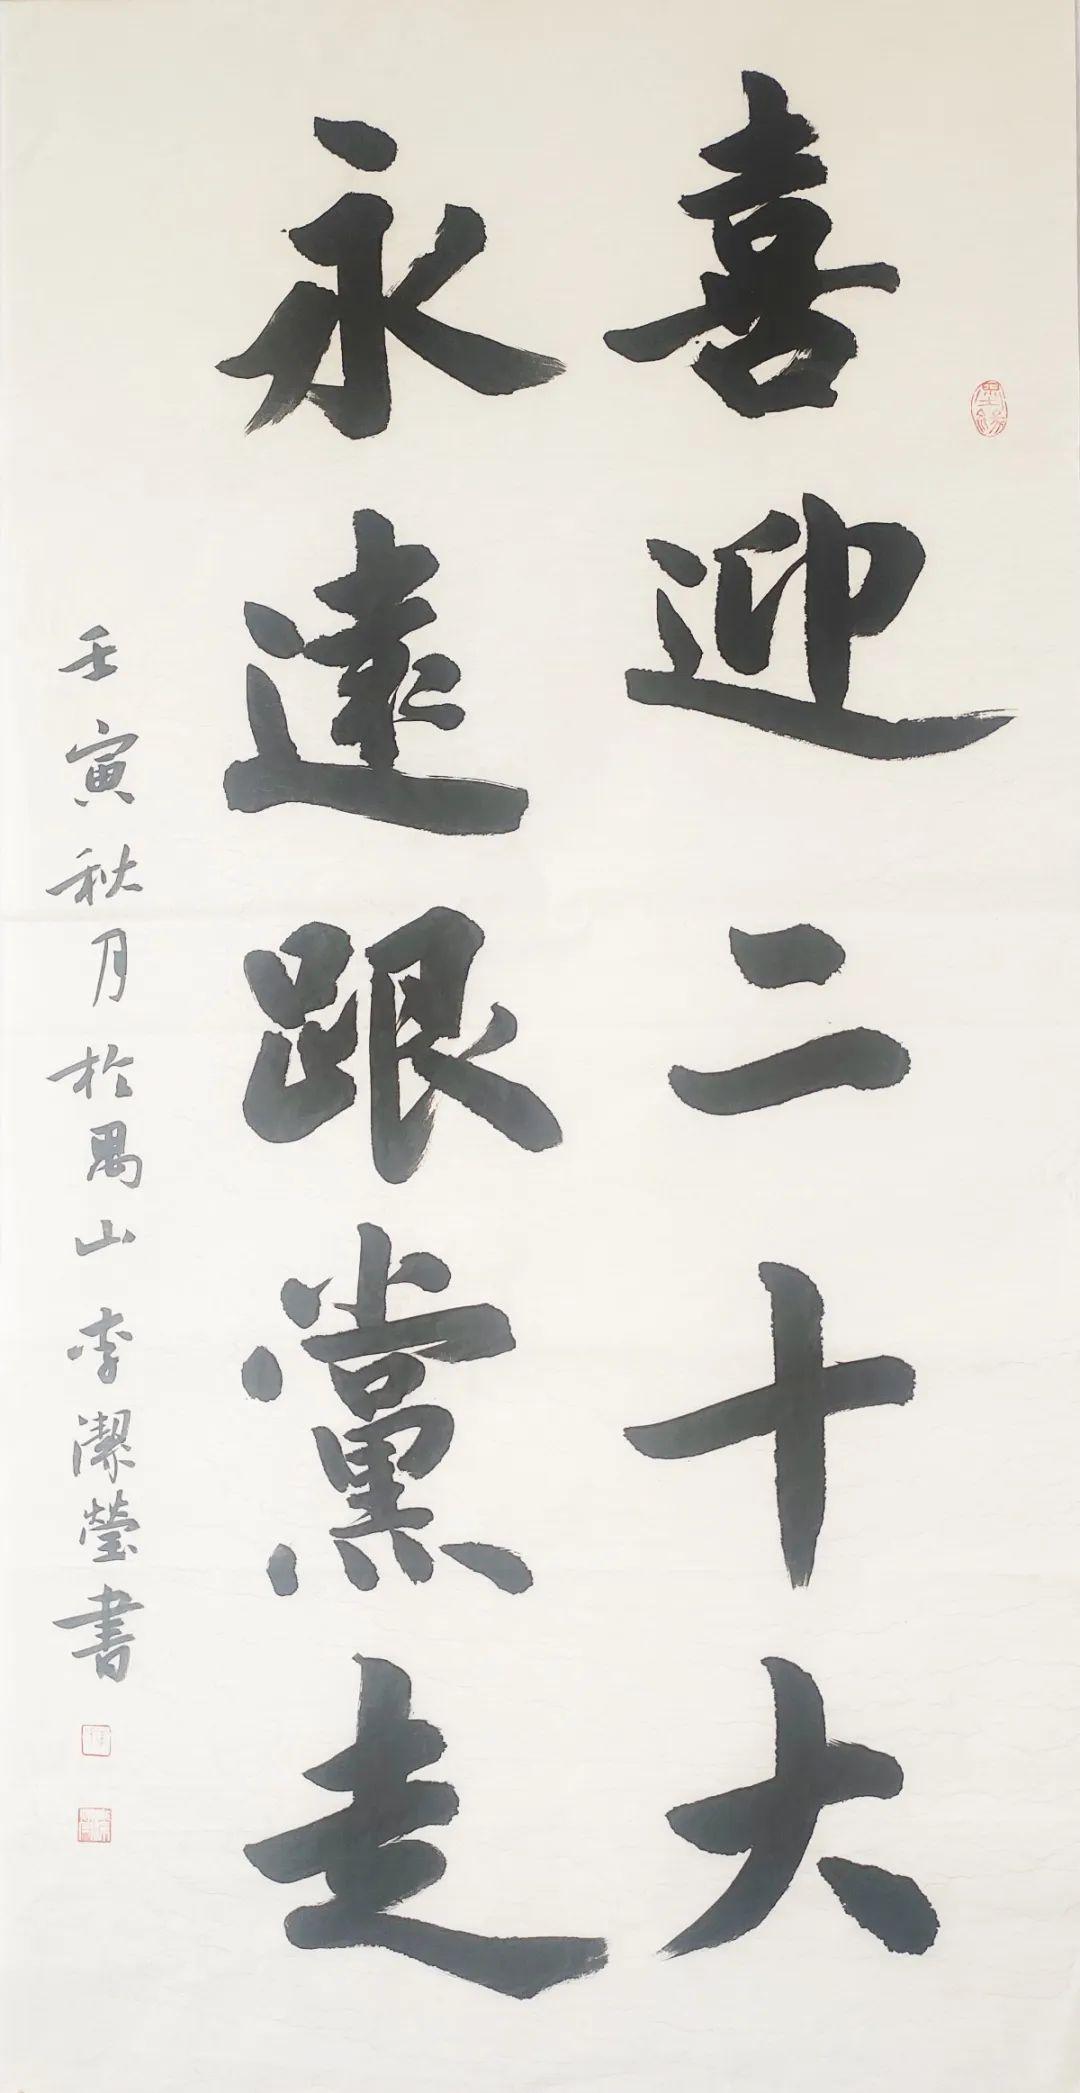 喜迎二十大
永遠跟黨走
壬寅秋月於禺山李潔瑩書